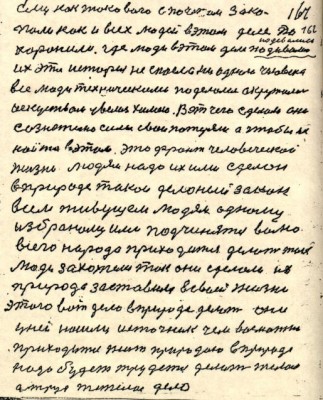 ему как такового с почетом Зако- 161
пали как и всех людей в этом деле по 162
хоронили. где люди в этом деле подевались
их эта история не спасла ни одного человека
все люди технические поделали окружили
искусством увели химию. Вот чего сделали они
сознательно силы свои потеряли а чтобы их
найти в этом. это гарант человеческой
жизни людям надо их или сделал
в природе такой деловый закон
всем живущем людям одному
избраному или подчинятся воли
всего народа приходится делать такие
люди захотели так они сделали их
природа заставила в своей жизни
этого вот дело в природе делать они
у ней нашли источник чем возможно
приходится жить природою в природе
надо будет трудется делать тяжело
а труд тяжелое дело